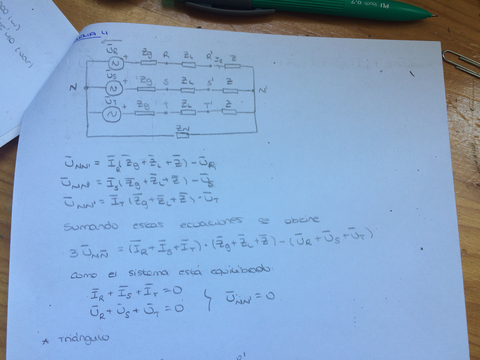 ŪR
+ Zg R ZL R' IR Z
ŪS
N + Zg S ZL S' Z N'
ŪT
+ Zg T ZL T' Z
ZN
ŪNN' = ĪR(Z̄g + Z̄L + Z̄) - ŪR
ŪNN' = ĪS(Z̄g + Z̄L + Z̄) - ŪS
ŪNN' = ĪT(Z̄g + Z̄L + Z̄) - ŪT
Sumando estas ecuaciones se obtiene
3 ŪNN = (ĪR + ĪS + ĪT) · (Z̄g + Z̄L + Z̄) - (ŪR + ŪS + ŪT)
Como el sistema está equilibrado
ĪR + ĪS + ĪT = 0
ŪR + ŪS + ŪT = 0 } ŪNN' = 0
* Triángulo
0'